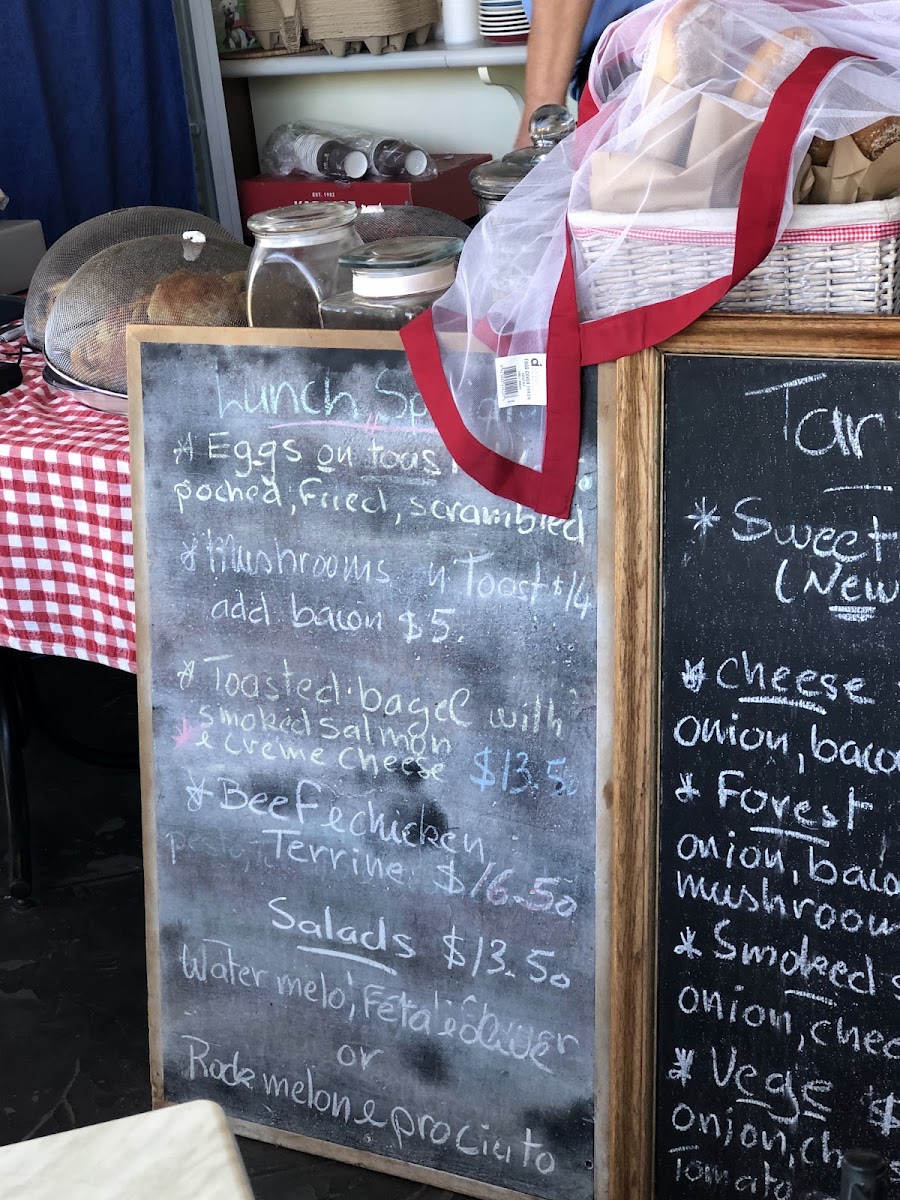 EST. 1982
Lunch Sp
* Eggs on toas
poched, fried, scrambled
* Mushrooms n Toast $14
add bacon $5.
* Toasted bagel with
smoked Salmon
* e creme cheese $13.50
* Beef e chicken
Terrine $16.50
Salads $13.50
Water melo, Feta e olive
or
Rock melon e prociuto
Tar
* Sweet
(New
* cheese
onion, baco
* Forest
onion, baco
mushroom
* Smoked s
onion, chee
* Vege $
onion, ch
Tomato